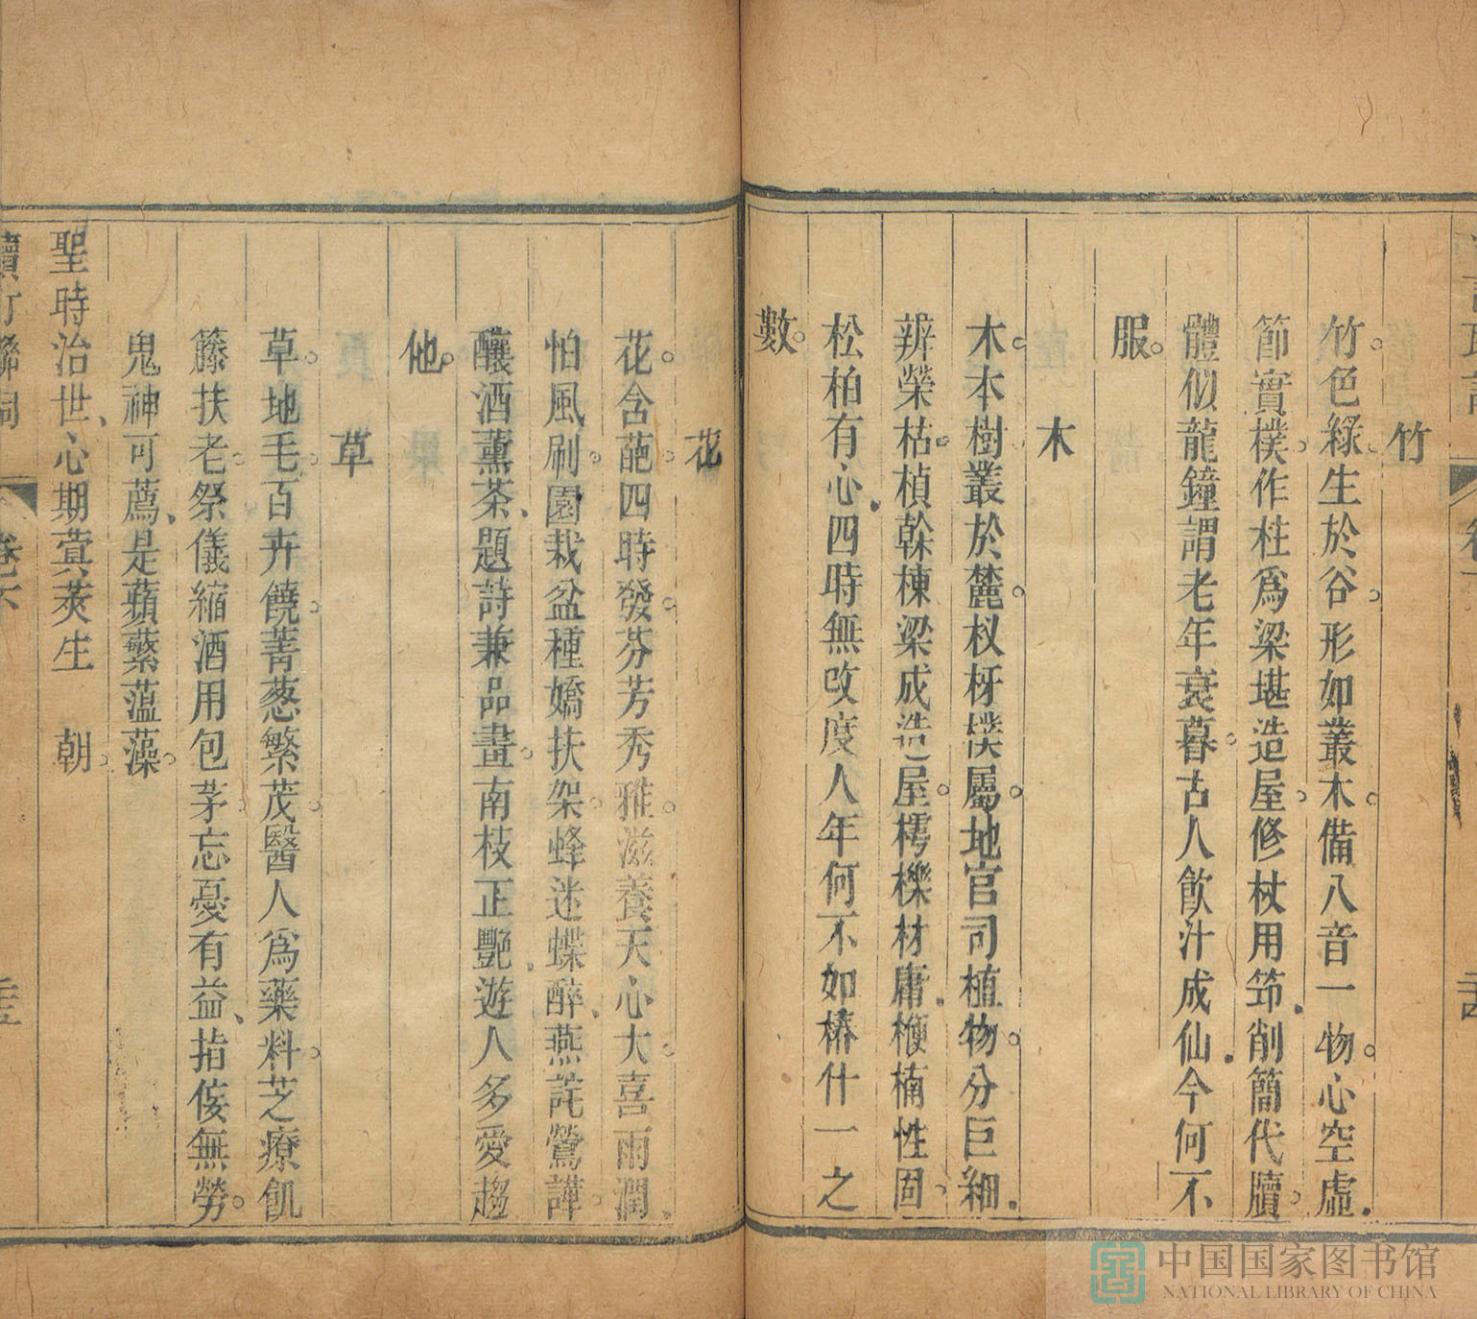 竹
竹色綠生於谷形如叢木備八音一物心空虛
節實樸作柱爲梁堪造屋修杖用筇削簡代牘
體似龍鐘謂老年衰暮古人飲汁成仙今何不
服
木
木本樹叢於麓杈枒樸屬地官司植物分巨細
辨榮枯楨榦棟梁成造屋樗櫟材庸楩楠性固
松柏有心四時無改度人年何不如椿什一之
數
花
花含葩四時發芬芳秀雅滋養天心大喜雨潤
怕風刷園栽盆種嬌扶架蜂迷蝶醉燕詫鶯譁
釀酒薰茶題詩兼品畫南枝正艷遊人多愛趨
他
草
草地毛百卉饒菁葱繁茂醫人爲藥料芝療飢
籐扶老祭儀縮酒用包茅忘憂有益指佞無勞
鬼神可薦是蘋蘩薀藻
聖時治世心期蓂莢生 朝
卷六
中国国家图书馆
NATIONAL LIBRARY OF CHINA